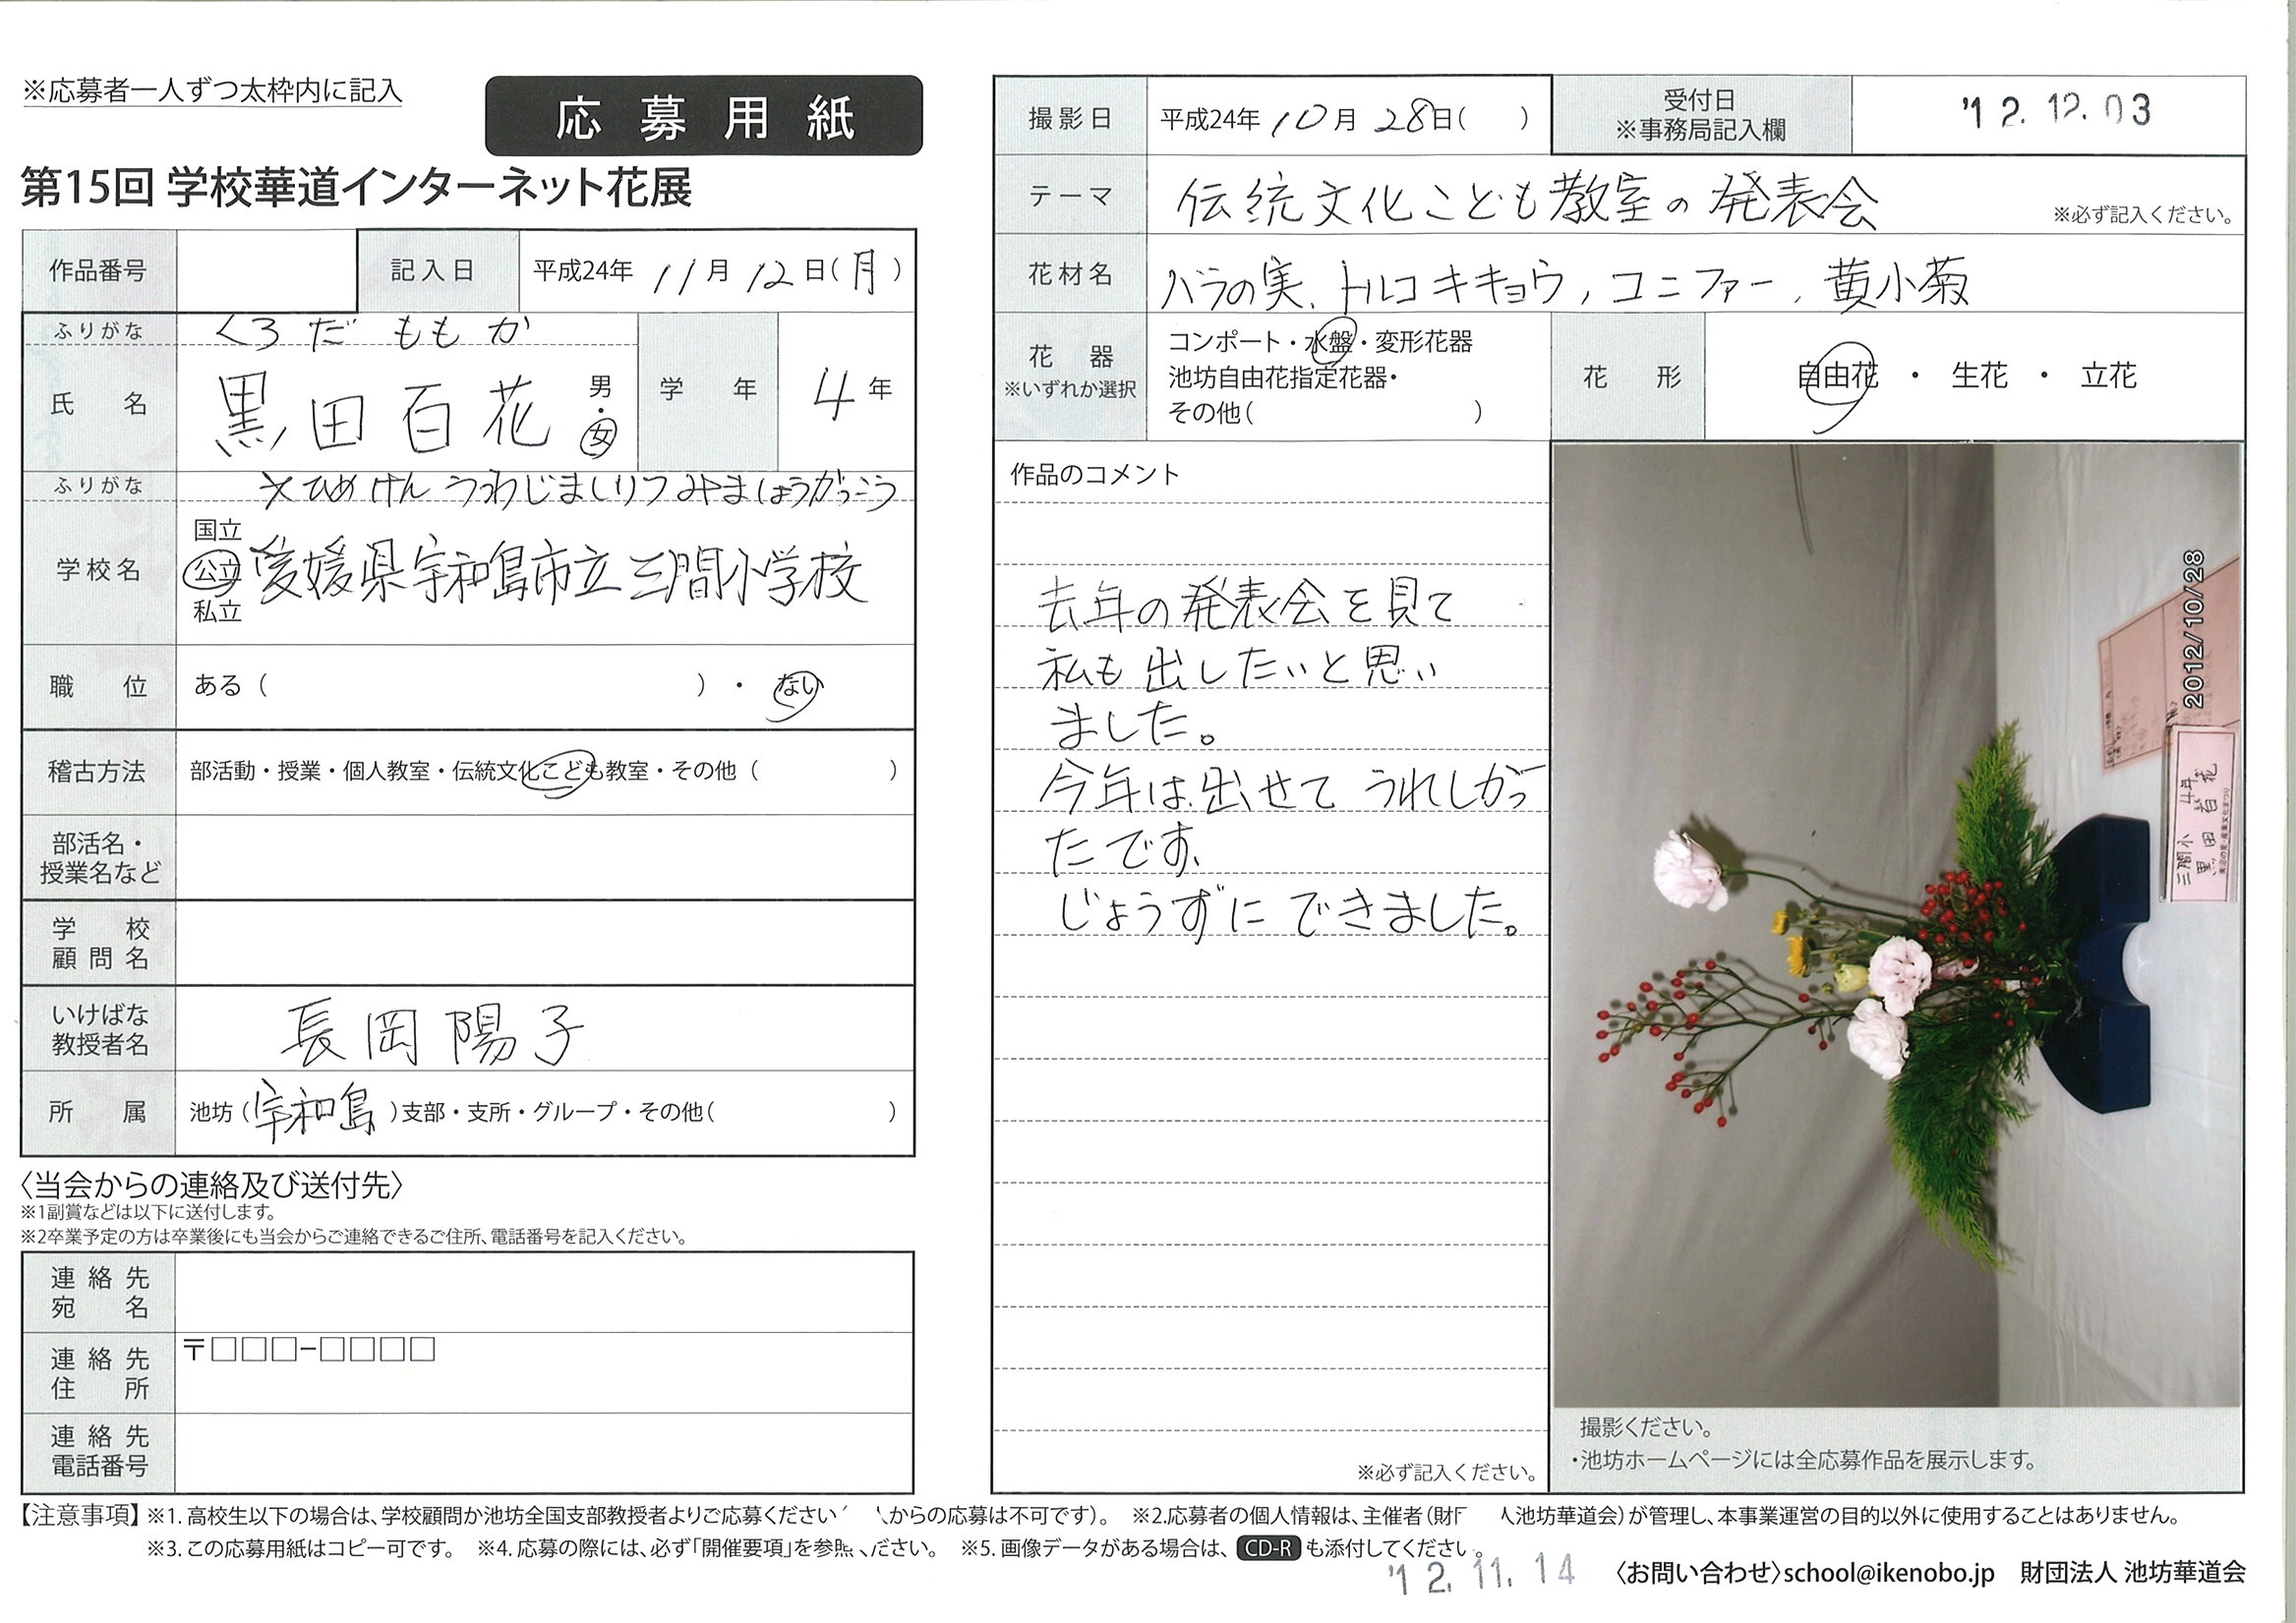 ※応募者一人ずつ太枠内に記入
応募用紙
第15回 学校華道インターネット花展
作品番号
記入日 平成24年 11月 12日(月)
ふりがな くろだ ももか
氏名 黒田百花 男・女
学年 4年
ふりがな えひめけん うわじましりつ みましょうがっこう
学校名 国立 公立 私立 愛媛県宇和島市立三間小学校
職位 ある( )・ない
稽古方法 部活動・授業・個人教室・伝統文化こども教室・その他( )
部活名・
授業名など
学校
顧問名
いけばな
教授者名 長岡陽子
所属 池坊(宇和島)支部・支所・グループ・その他( )
〈当会からの連絡及び送付先〉
※1副賞などは以下に送付します。
※2卒業予定の方は卒業後にも当会からご連絡できるご住所、電話番号を記入ください。
連絡先
宛名
連絡先
住所 〒□□□-□□□□
連絡先
電話番号
撮影日 平成24年 10月 28日( )
受付日
※事務局記入欄 '12.12.03
テーマ 伝統文化こども教室の発表会 ※必ず記入ください。
花材名 バラの実、トルコキキョウ、コニファー、黄小菊
花器
※いずれか選択
コンポート・水盤・変形花器
池坊自由花指定花器・
その他( )
花形 自由花・生花・立花
作品のコメント
去年の発表会を見て
私も出したいと思い
ました。
今年は出せてうれしかっ
たです。
じょうずにできました。
※必ず記入ください。
2012/10/28
三間小 4年
黒田百花
撮影ください。
・池坊ホームページには全応募作品を展示します。
【注意事項】※1.高校生以下の場合は、学校顧問か池坊全国支部教授者よりご応募ください からの応募は不可です)。 ※2.応募者の個人情報は、主催者(財 人池坊華道会)が管理し、本事業運営の目的以外に使用することはありません。
※3.この応募用紙はコピー可です。 ※4.応募の際には、必ず「開催要項」を参照ください。 ※5.画像データがある場合は、CD-Rも添付してください。
'12.11.14
〈お問い合わせ〉school@ikenobo.jp 財団法人 池坊華道会